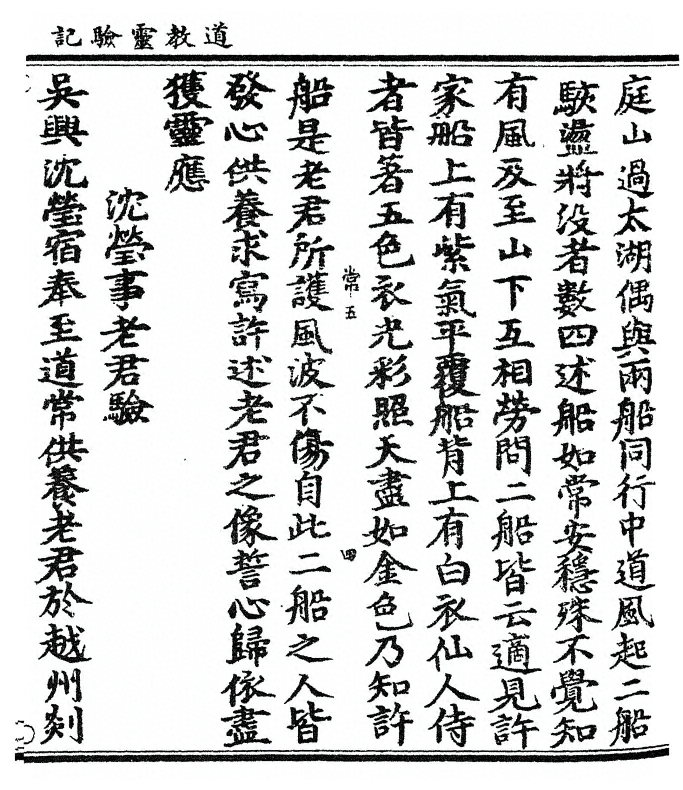 道教靈驗記
庭山過太湖偶與兩船同行中道風起二船
駭盪將没者數四述船如常安穩殊不覺知
有風及至山下互相勞問二船皆云適見許
家船上有紫氣平覆船背上有白衣仙人侍
者皆著五色衣光彩照天盡如金色乃知許
常五
四
船是老君所護風波不傷自此二船之人皆
發心供養求寫許述老君之像誓心歸依盡
獲靈應
沈瑩事老君驗
吳興沈瑩宿奉至道常供養老君於越州剡